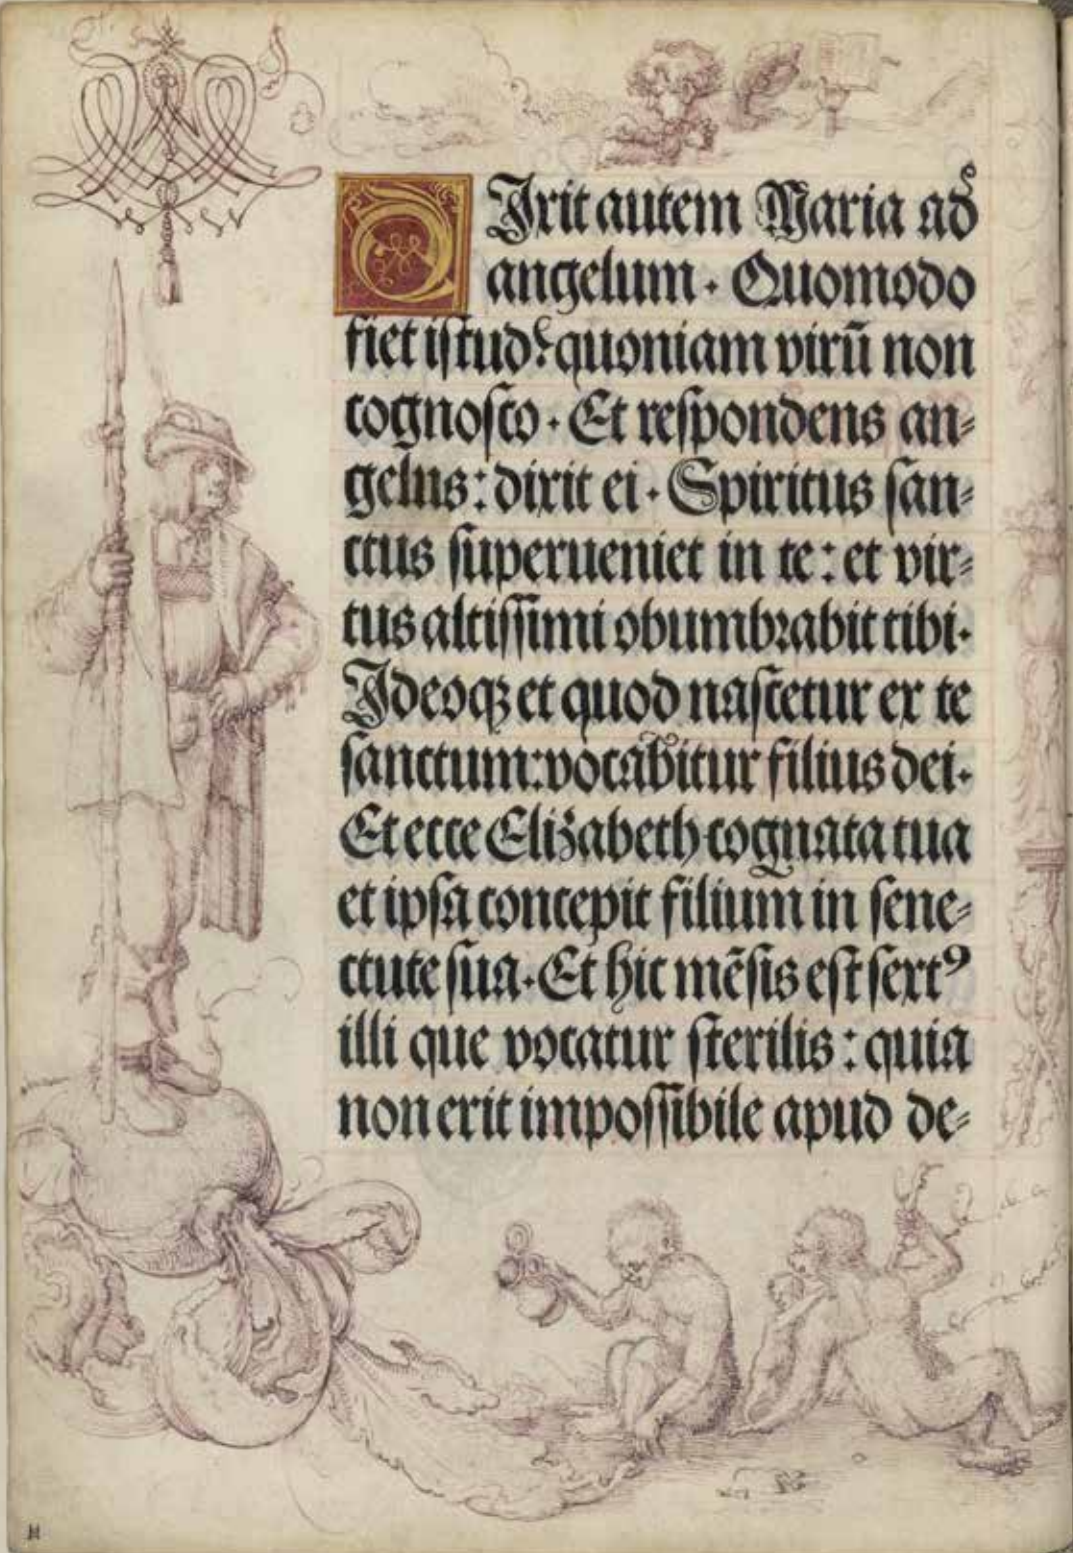 DJxit autem Maria ad
angelum. Quomodo
fiet iſtud? quoniam virū non
cognoſco. Et reſpondens an⸗
gelus: dixit ei. Spiritus ſan⸗
ctus ſuperueniet in te: et vir⸗
tus altiſſimi obumbꝛabit tibi.
Jdeoqꝫ et quod naſcetur ex te
ſanctum: vocabitur filius dei.
Et ecce Elizabeth cognata tua
et ipſa concepit filium in ſene⸗
ctute ſua. Et hic mēſis eſt ſextꝰ
illi que vocatur ſterilis: quia
non erit impoſſibile apud de⸗